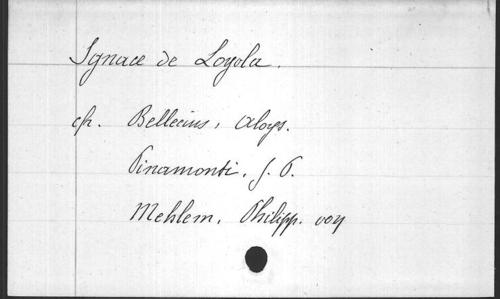 Ignace de Loyola.
cfr. Bellecius, Aloys.
Pinamonti, J. P.
Mehlem, Philipp. von